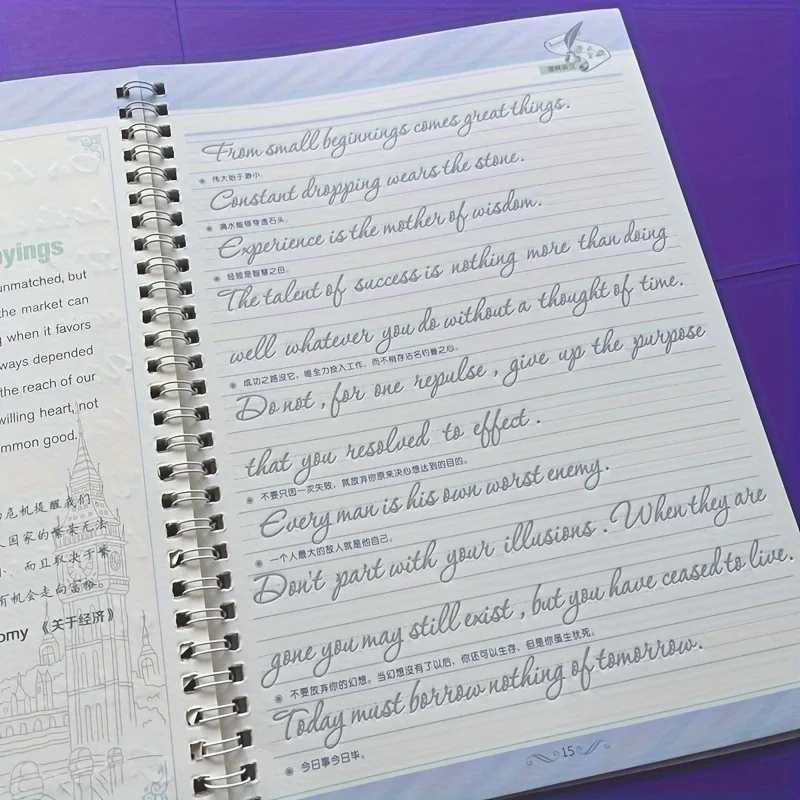 yings
unmatched, but
the market can
when it favors
ways depended
the reach of our
willing heart, not
mmon good.
危机提醒我们
国家的繁荣无法
而且取决于繁
有机会走向富裕。
omy 《关于经济》
From small beginnings comes great things.
伟大始于渺小.
Constant dropping wears the stone.
滴水能够穿透石头.
Experience is the mother of wisdom.
经验是智慧之母.
The talent of success is nothing more than doing
well whatever you do without a thought of time.
成功之路没它，唯全力投入工作，而不稍存沽名钓誉之心。
Do not , for one repulse , give up the purpose
that you resolved to effect .
不要只因一次失败，就放弃你原来决心想达到的目的。
Every man is his own worst enemy.
一个人最大的敌人就是他自己。
Don't part with your illusions . When they are
gone you may still exist , but you have ceased to live.
不要放弃你的幻想。当幻想没有了以后，你还可以生存，但是你虽生犹死。
Today must borrow nothing of tomorrow.
今日事今日毕。
15